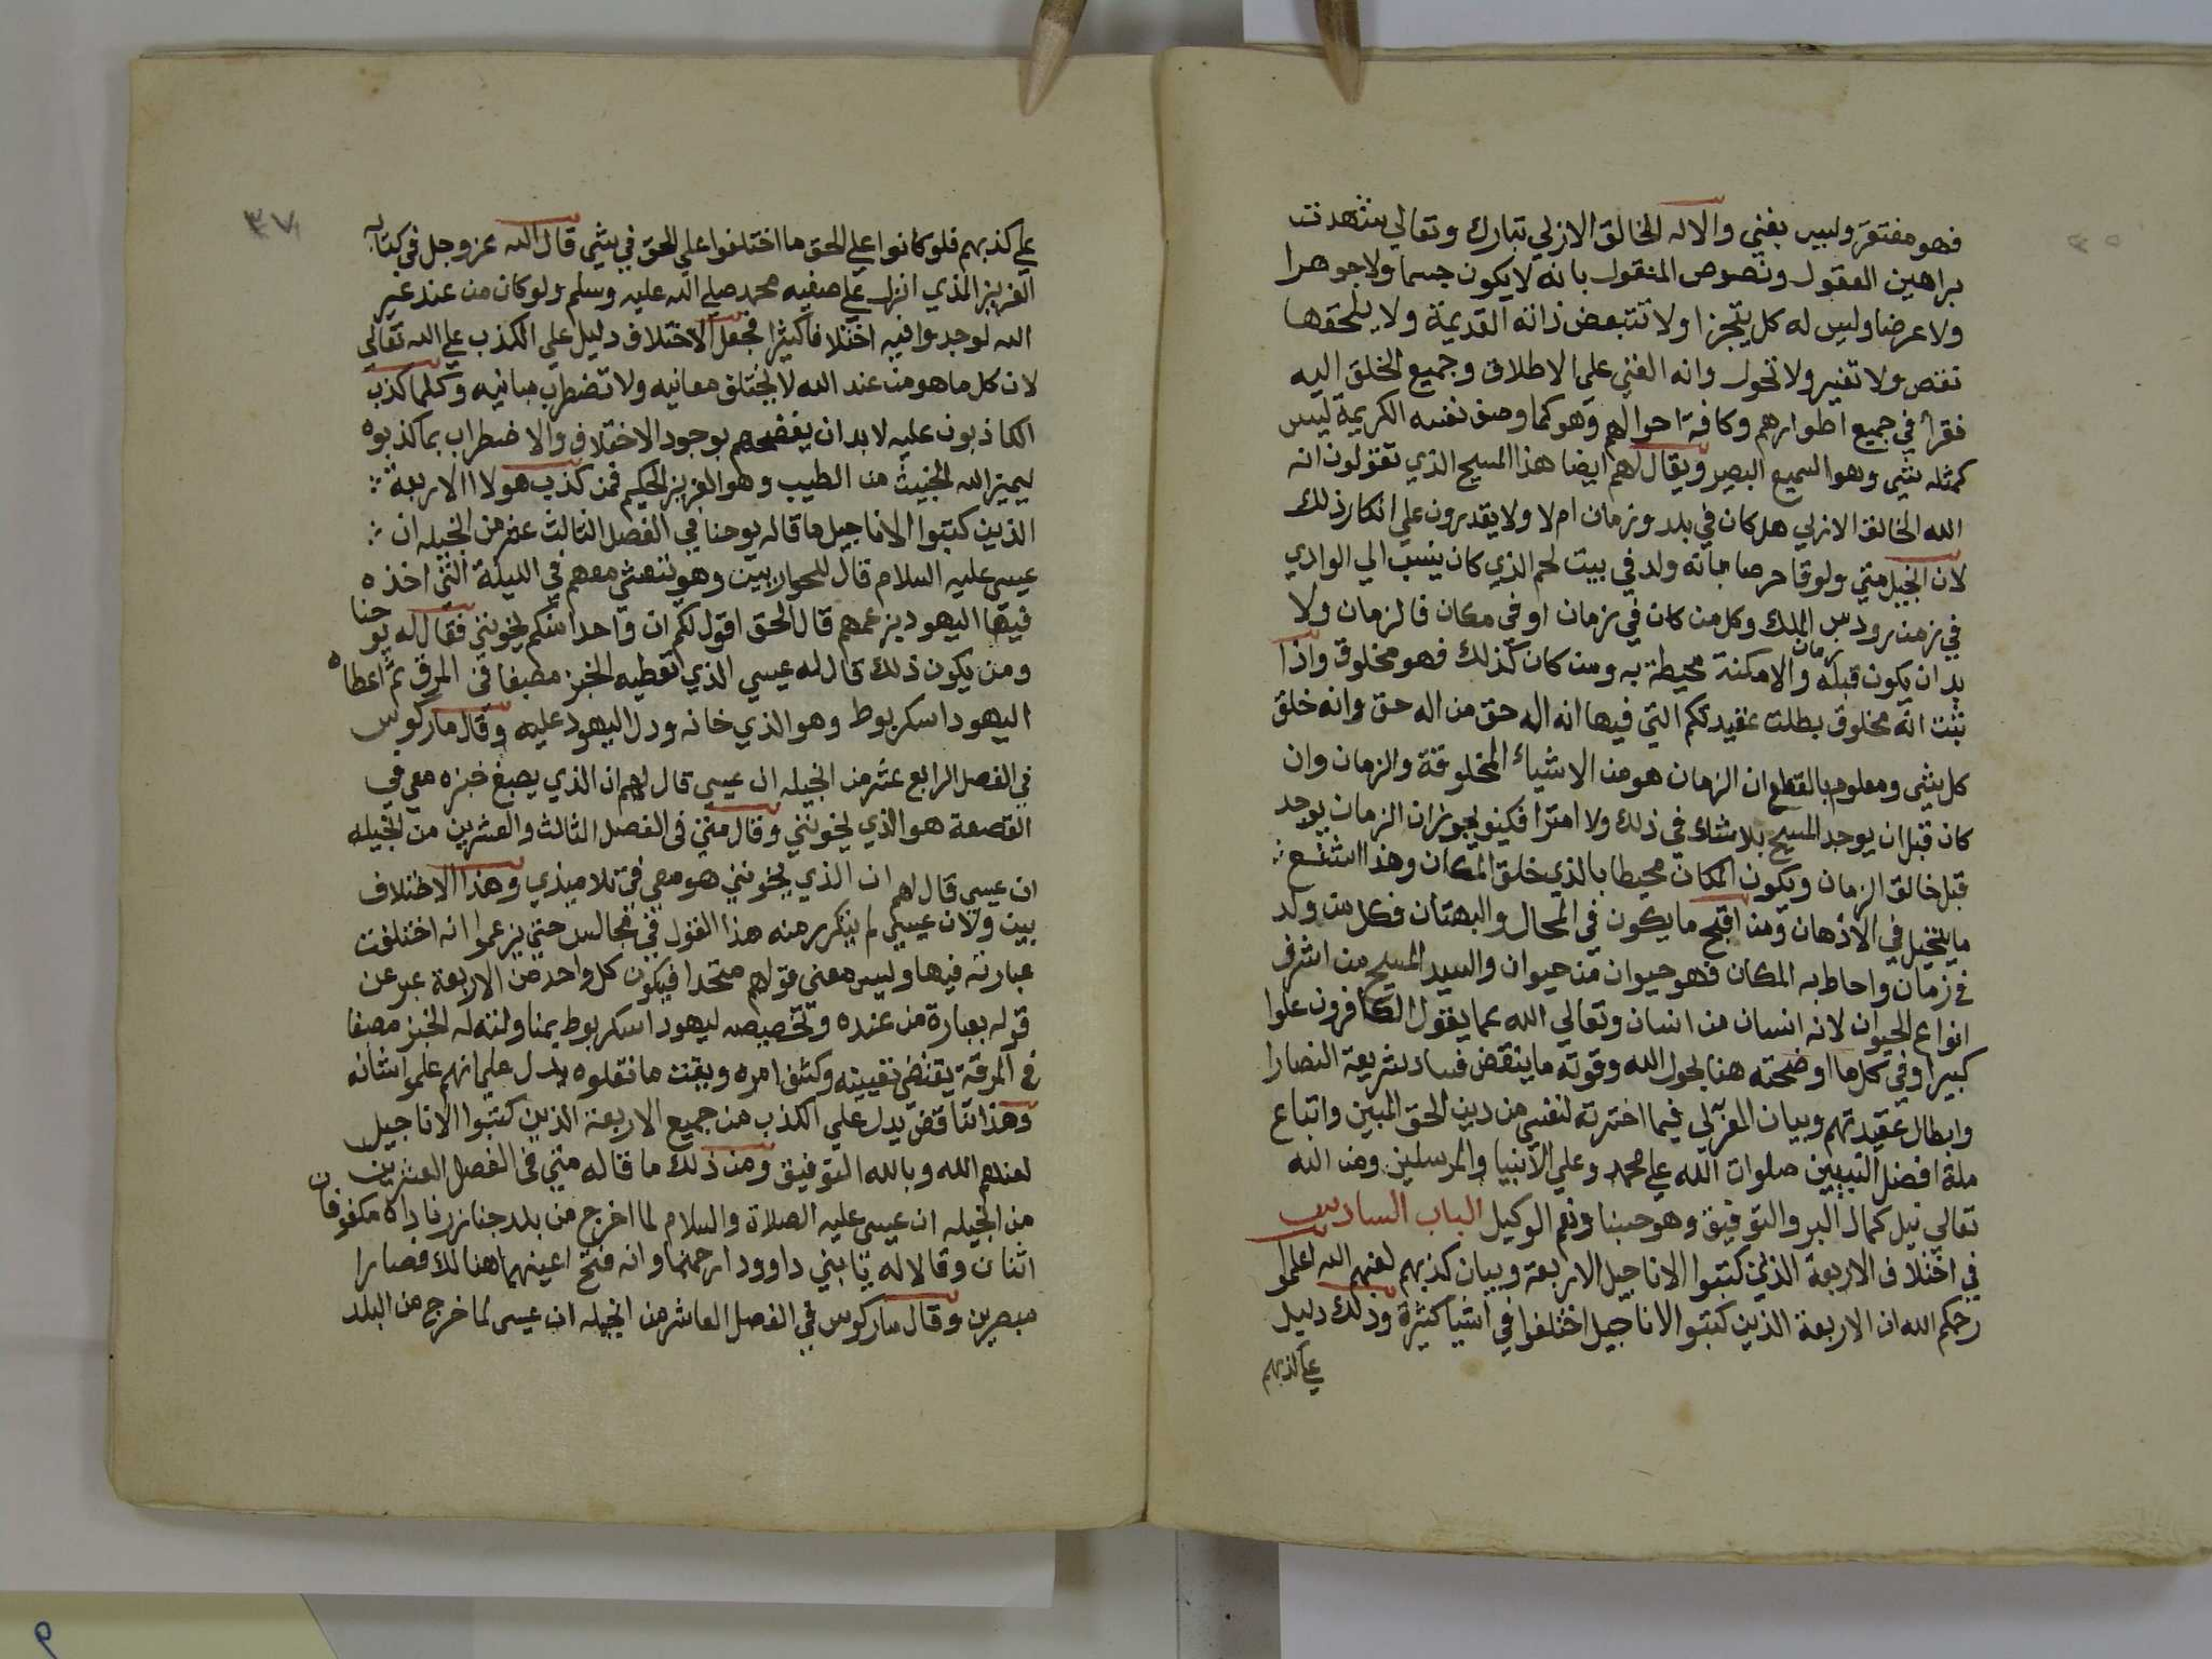 فهو مفتقر وليس بغني والاله الخالق الازلي تبارك وتعالي شهدت
براهين العقول ونصوص المنقول بانه لا يكون جسما ولا جوهرا
ولا عرضا وليس له كل يتجزا ولا تتبعض ذاته القديمة ولا يلحقها
نقص ولا تغير ولا تحول وانه الغني علي الاطلاق وجميع الخلق اليه
فقرأ في جميع اطوارهم وكافة احوالهم وهو كما وصف نفسه الكريمة ليس
كمثله شي وهو السميع البصير ويقال لهم ايضا هذا المسيح الذي تقولون انه
الله الخالق الازلي هل كان في بلد وزمان ام لا ولا يقدرون علي انكار ذلك
لان انجيل متي ولوقا حرصا بانه ولد في بيت لحم الذي كان ينسب الي الوادي
في زمن رودس الملك وكل من كان في زمان او في مكان فالزمان ولا
بد ان يكون قبله زمان والامكنة محيطة به ومن كان كذلك فهو مخلوق واذا
ثبت انه مخلوق بطلت عقيدتكم التي فيها انه اله حق من اله حق وانه خلق
كل شي ومعلوم بالقطع ان الزمان هو من الاشياء المخلوقة والزمان وان
كان قبل ان يوجد المسيح بلا شك في ذلك ولا امترا فكيف يجوز ان الزمان يوجد
قبل خالق الزمان ويكون المكان محيطا بالذي خلق المكان وهذا اشنع
ما يتخيل في الاذهان ومن اقبح ما يكون في المحال والبهتان فكل من ولد
في زمان واحاط به المكان فهو حيوان من حيوان والسيد المسيح من اشرف
انواع الحيوان لانه انسان من انسان وتعالي الله عما يقول الكافرون علوا
كبيرا وفي كل ما اوضحته هنا بحول الله وقوته ما ينقض فساد شريعة النصارا
وابطال عقيدتهم وبيان المعزلي فيما اخترته لنفسي من دين الحق المبين واتباع
ملة افضل النبيين صلوات الله علي محمد وعلي الانبيا والمرسلين ومن الله
تعالي نيل كمال البر والتوفيق وهو حسبنا ونعم الوكيل الباب السادس
في اختلاف الاربعة الذين كتبوا الاناجيل الاربعة وبيان كذبهم لعنهم الله اعلموا
رحمكم الله ان الاربعة الذين كتبوا الاناجيل اختلفوا في اشيا كثيرة وذلك دليل
علي كذبهم
٣٧
علي كذبهم فلو كانوا علي الحق ما اختلفوا علي الحق في شي قال الله عز وجل في كتابه
العزيز الذي انزل علي صفيه محمد صلي الله عليه وسلم ولو كان من عند غير
الله لوجدوا فيه اختلافا كثيرا فجعل الاختلاف دليل علي الكذب علي الله تعالي
لان كل ما هو من عند الله لا يختلف معانيه ولا تضطرب مبانيه وكلما كذب
الكاذبون عليه لا بد ان يفضحهم بوجود الاختلاف والاضطراب بما كذبوه
ليميز الله الخبيث من الطيب وهو العزيز الحكيم فمن كذب هولا الاربعة
الذين كتبوا الاناجيل ما قاله يوحنا في الفصل الثالث عشر من انجيله ان
عيسي عليه السلام قال للحواريين وهو يتعشي معهم في الليلة التي اخذه
فيها اليهود بزعمهم قال الحق اقول لكم ان واحدا منكم يخونني فقال له يوحنا
ومن يكون ذلك قال له عيسي الذي نعطيه الخبز مصبغا في المرق ثم اعطاه
اليهودا سكريوط وهو الذي خانه ودل اليهود عليه وقال ماركوس
في الفصل الرابع عشر من انجيله ان عيسي قال لهم ان الذي يصبغ خبزه معي في
القصعة هو الذي يخونني وقال متي في الفصل الثالث والعشرين من انجيله
ان عيسي قال لهم ان الذي يخونني هو معي في تلاميذي وهذا الاختلاف
بين ولان عيسي لم يتكرر منه هذا القول في مجالس حتي يزعموا انه اختلفت
عبارته فيها وليس معني قولهم متحدا فيكون كل واحد من الاربعة عبر عن
قوله بعبارة من عنده وتخصيصه ليهودا سكريوط بمناولته له الخبز مصبغا
في المرقة يقتضي تعيينه وكشف امره وبقيت ما نقلوه يدل علي انهم علموا شانه
وهذا تناقض يدل علي الكذب من جميع الاربعة الذين كتبوا الاناجيل
لعنهم الله وبالله التوفيق ومن ذلك ما قاله متي في الفصل العشرين
من انجيله ان عيسي عليه الصلاة والسلام لما اخرج من بلد جنازرنا داه مكفوفان
اثنان وقالا له يا بني داوود ارحمنا وانه فتح اعينهما هنالك فصارا
مبصرين وقال ماركوس في الفصل العاشر من انجيله ان عيسي لما خرج من البلد